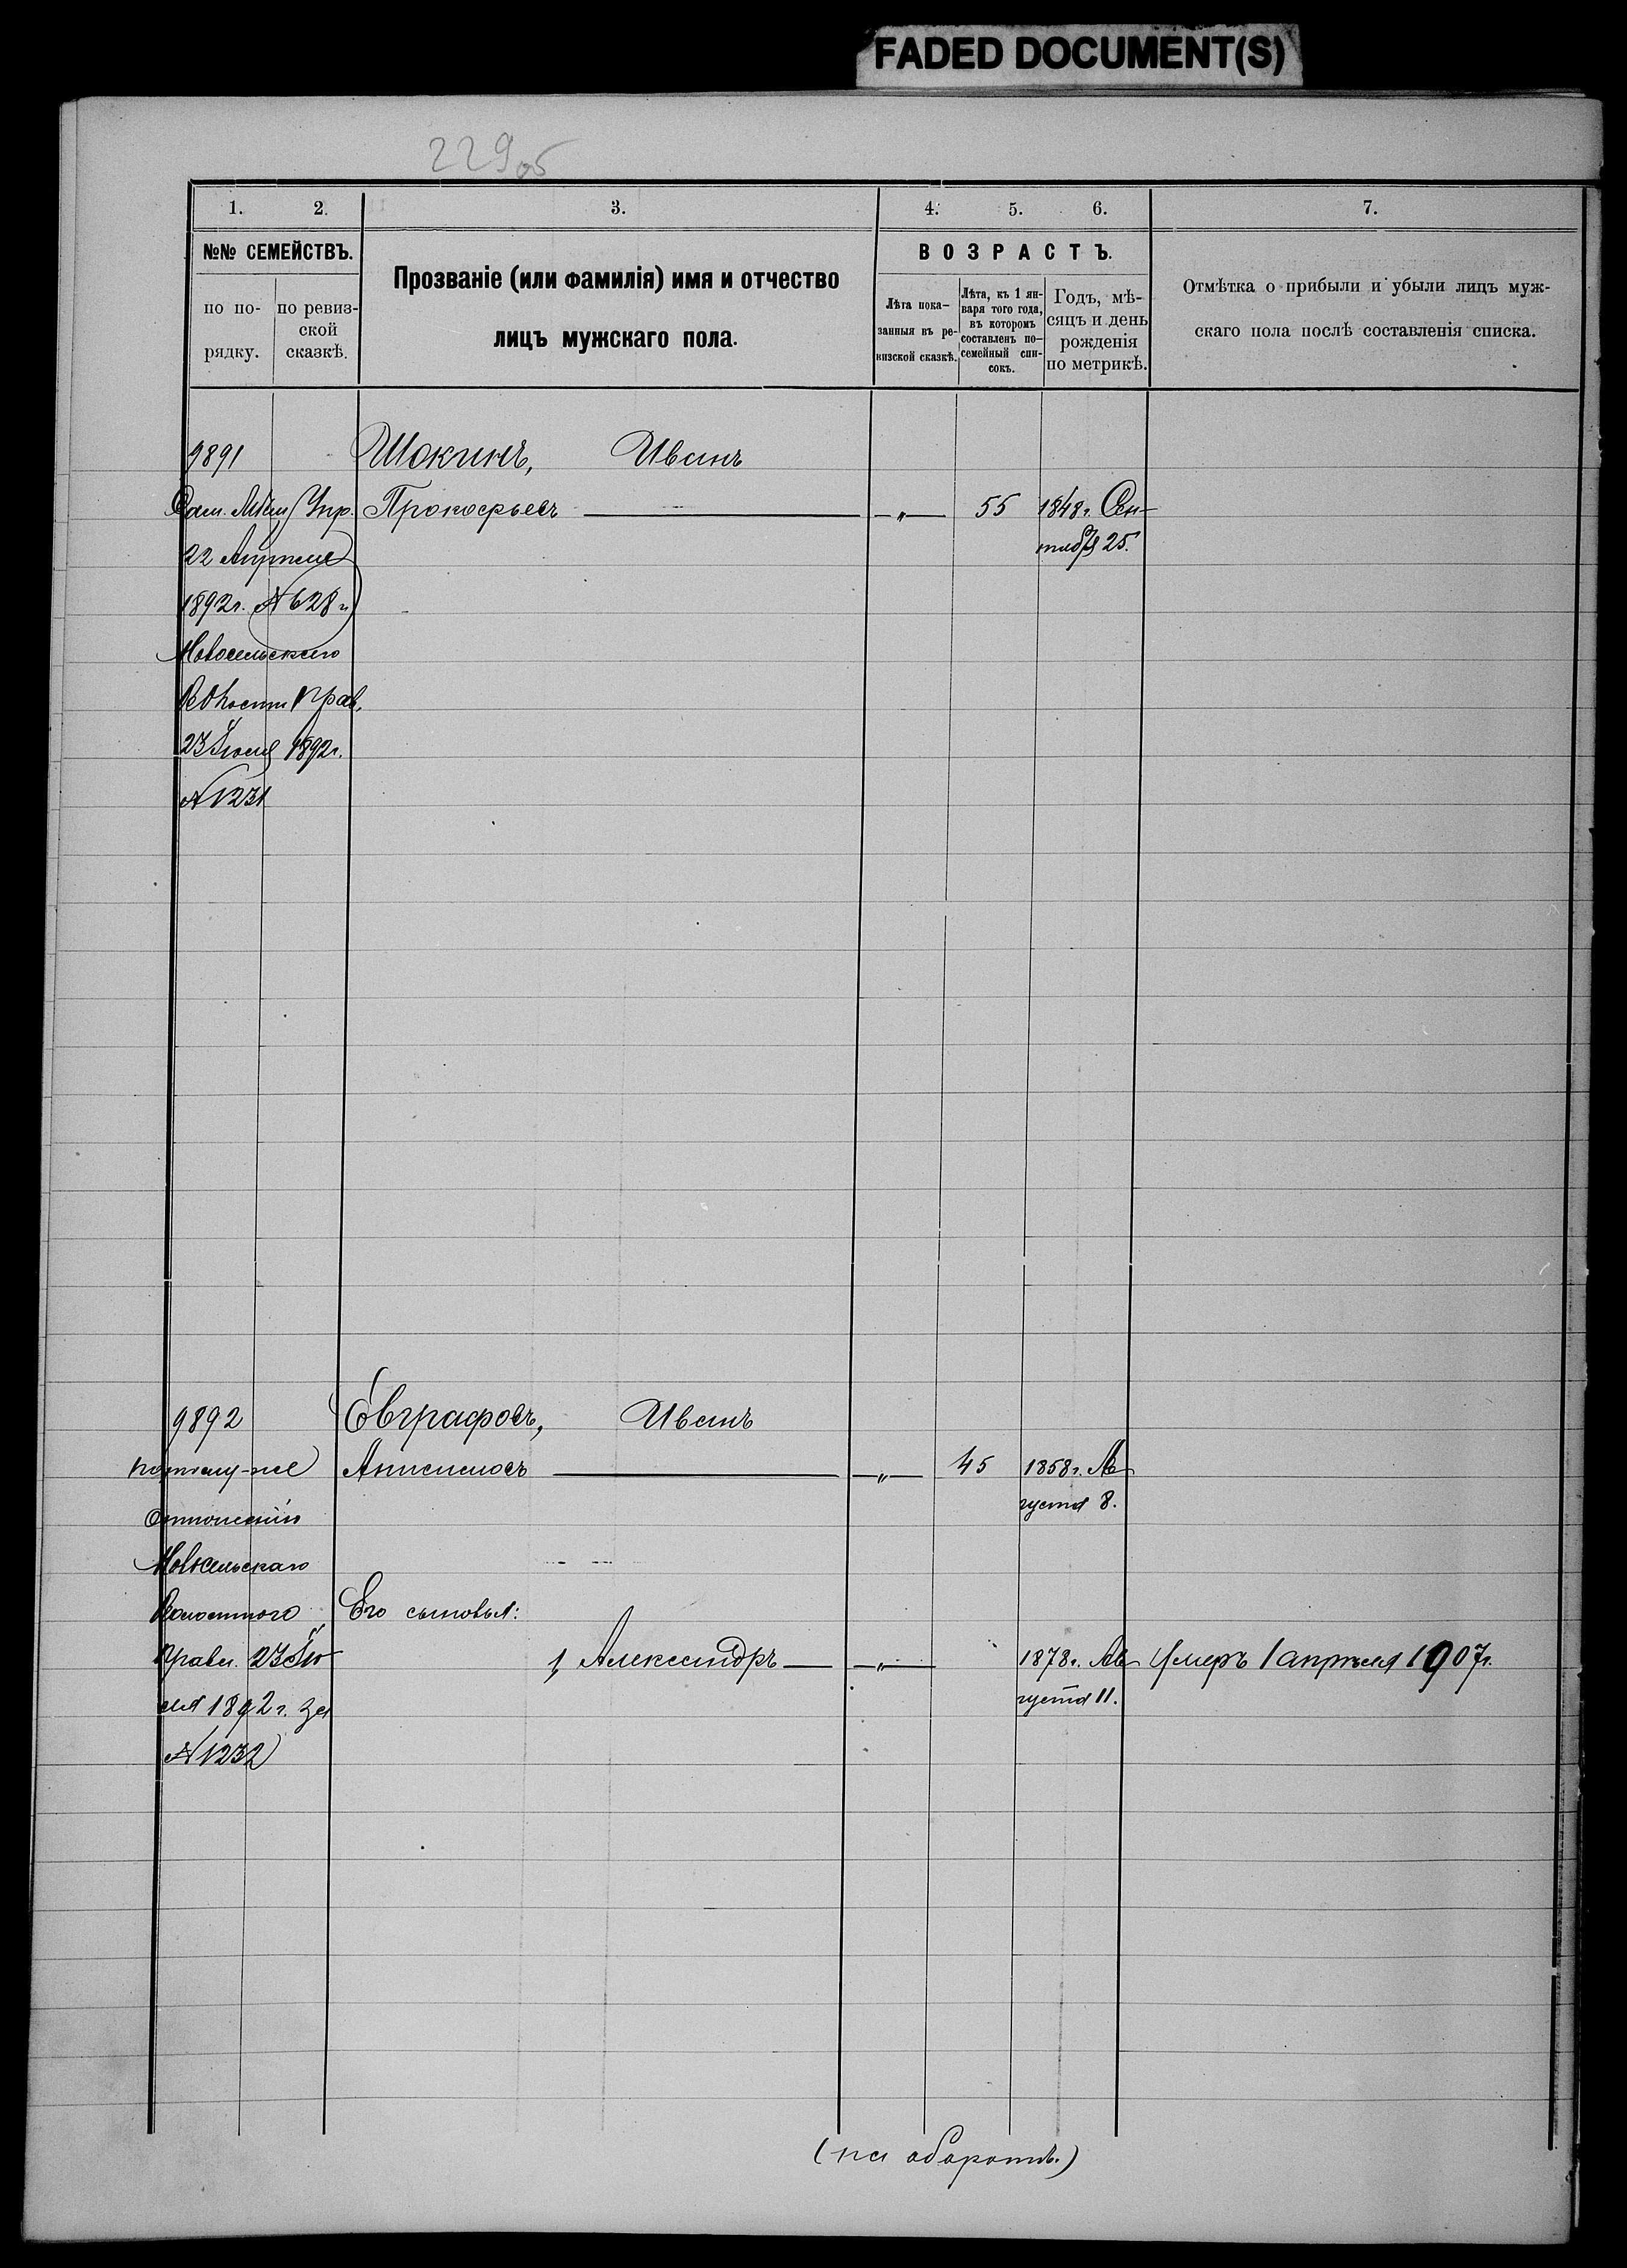 FADED DOCUMENT(S)
229об
1. 2. 3. 4. 5. 6. 7.
№№ СЕМЕЙСТВЪ.
по по-
рядку.
по ревиз-
ской
сказкѣ.
Прозваніе (или фамилія) имя и отчество
лицъ мужскаго пола.
ВОЗРАСТЪ.
Лѣта пока-
занныя въ ре-
визской сказкѣ.
Лѣта, къ 1 ян-
варя того года,
въ которомъ
составленъ по-
семейный спи-
сокъ.
Годъ, мѣ-
сяцъ и день
рожденія
по метрикѣ.
Отмѣтка о прибыли и убыли лицъ муж-
скаго пола послѣ составленія списка.
9891
Сам. Мѣщ. Упр.
22 Апрѣля
1892г. № 628 и
Новосельскаго
Волостн Прав.
23 Іюля 1892г.
№ 1231
Шокинъ, Иванъ
Прокофьевъ — „ — 55 1848г. Сен-
тября 25.
9892
по тому-же
отношенію
Новосельскаго
Волостного
Правл. 23 Ію
ля 1892г. за
№ 1232
Евграфовъ, Иванъ
Анисимовъ — „ — 45 1858г. Ав
густа 8.
Его сыновья:
1, Александръ — „ — 1878г. Ав
густа 11.
Умеръ 1 апрѣля 1907г.
(на оборотѣ.)